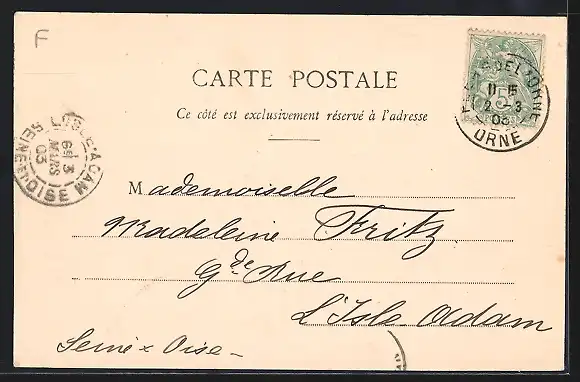 F
CARTE POSTALE
Ce côté est exclusivement réservé à l'adresse
11-15
2-3
03
ORNE
L'ISLE-ADAM
3
MARS
03
SEINE-ET-OISE
Mademoiselle
Madeleine Fritz
Gde Rue
L'Isle Adam
Seine & Oise -